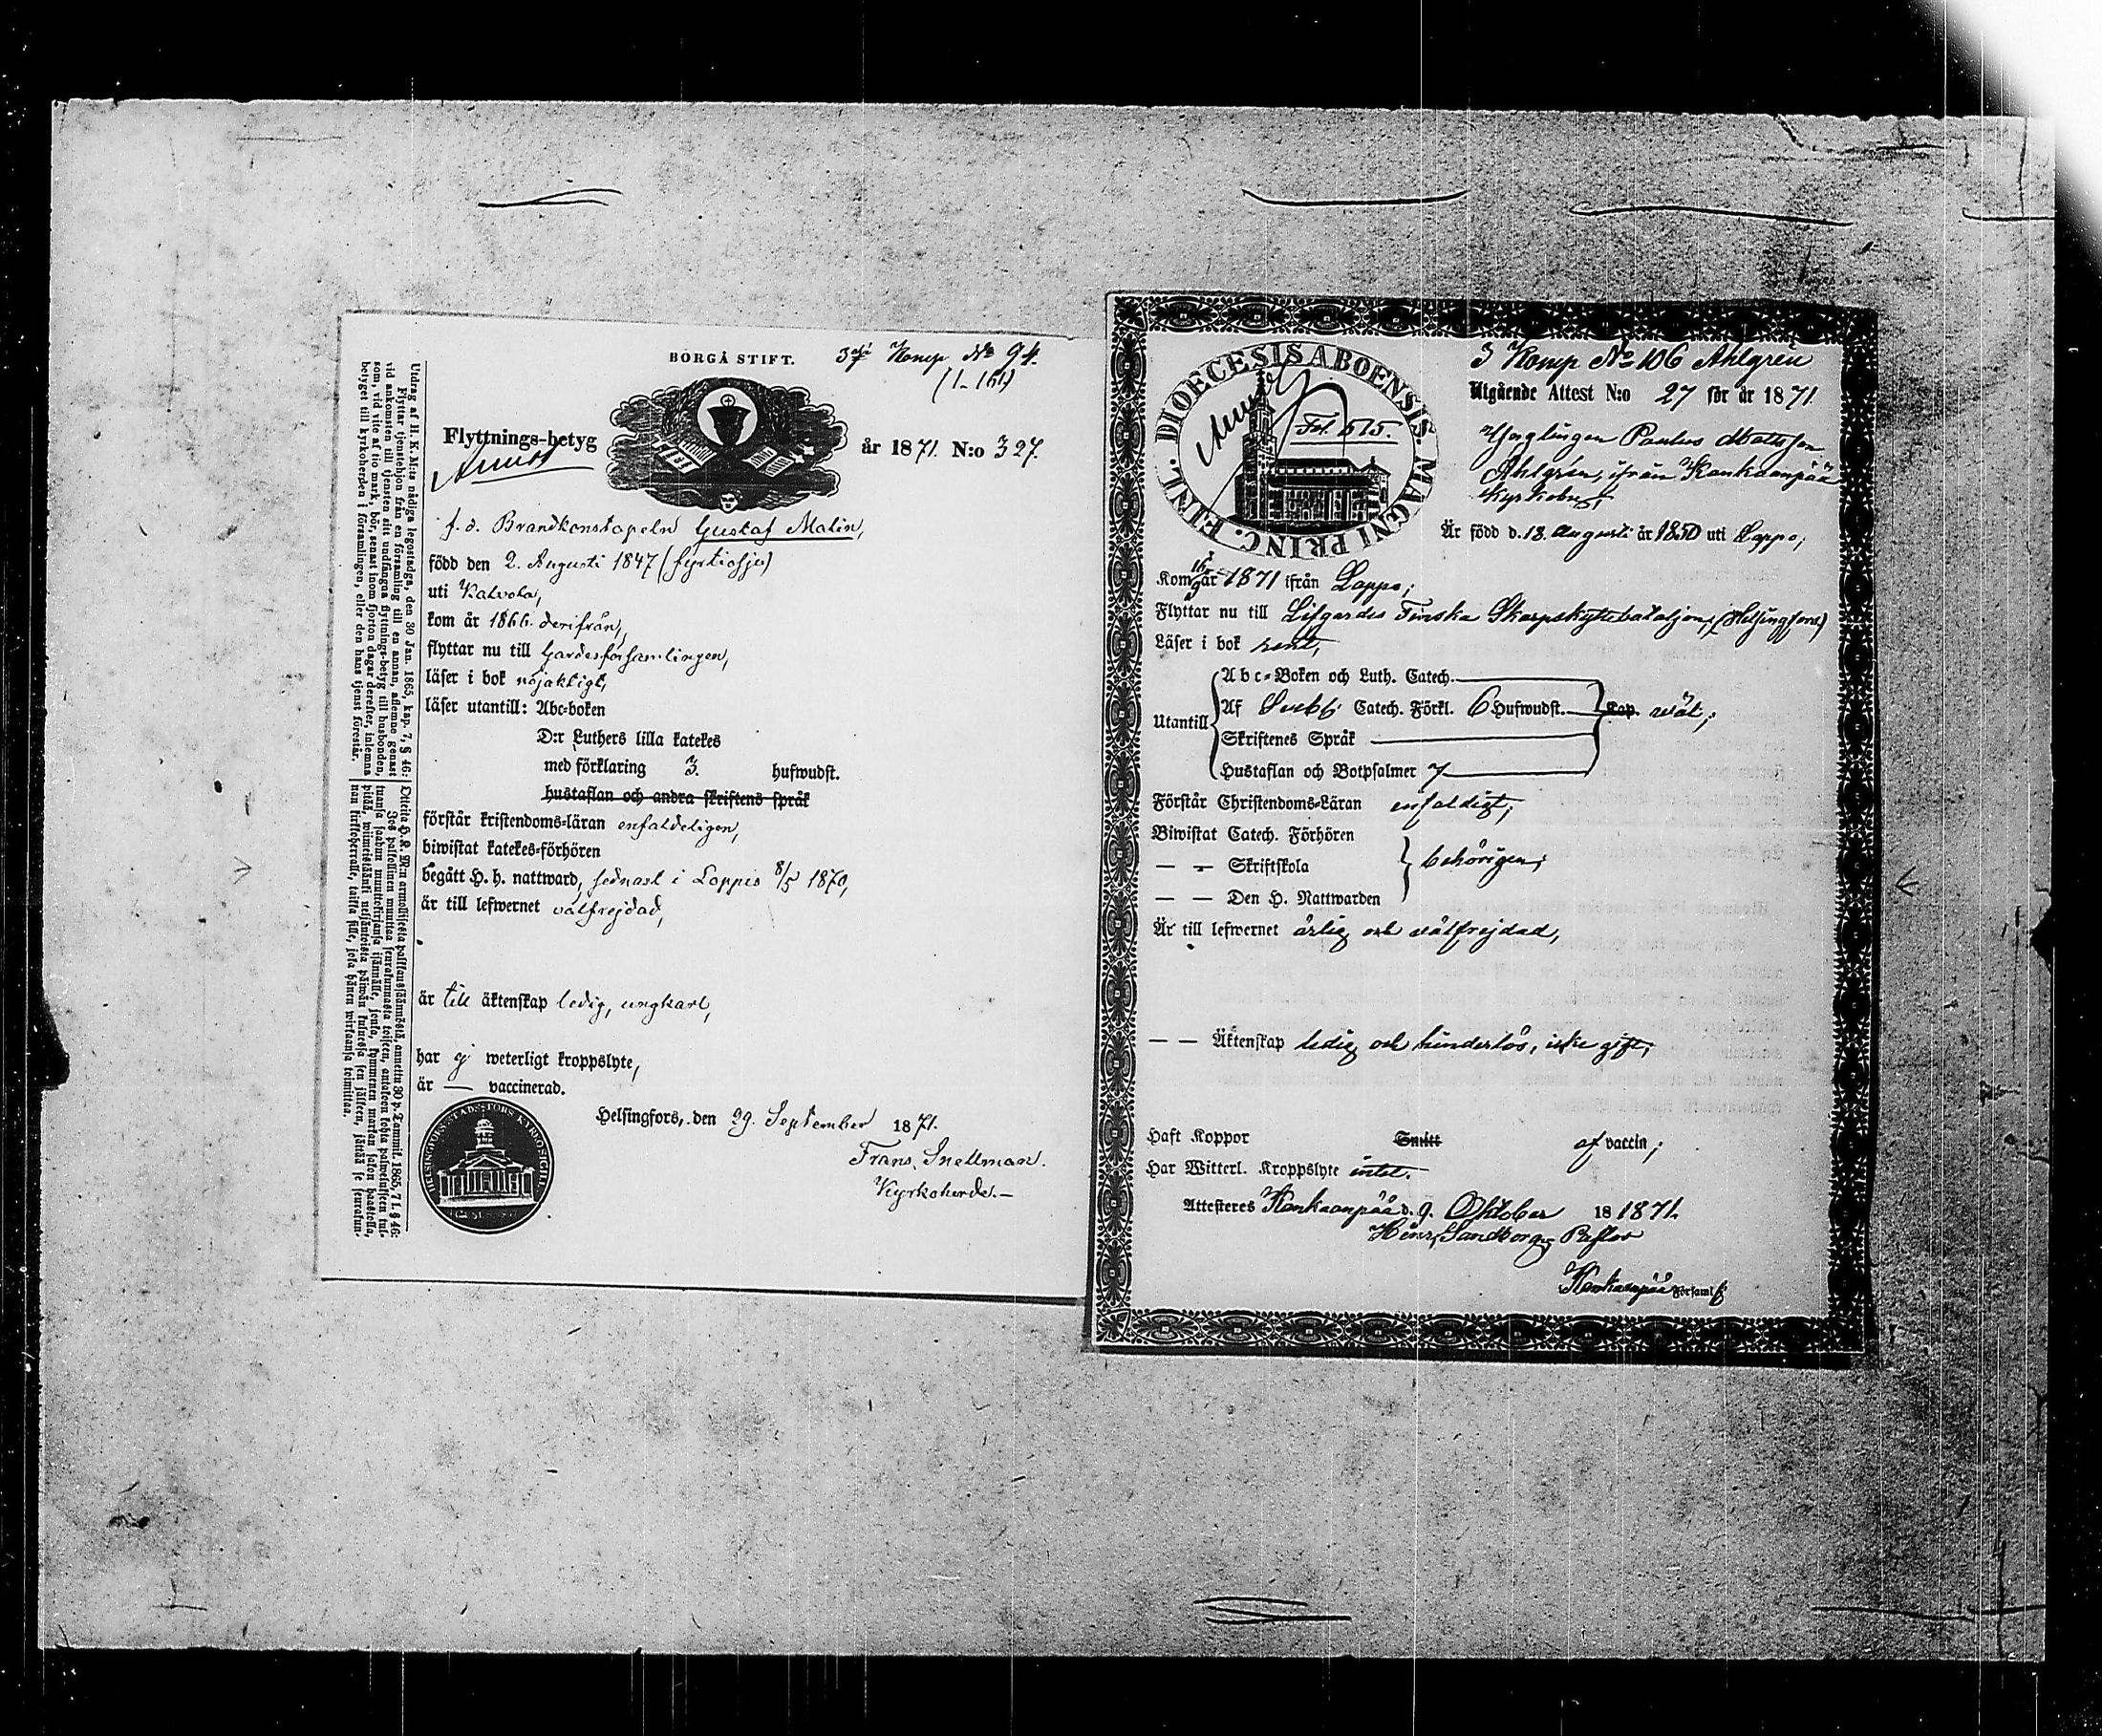 BORGÅ STIFT.
3dje Komp No 94.
(1-161)
Flyttnings-betyg
år 1871. N:o 327.
f. d. Brandkonstapeln Gustaf Malin,
född den 2. Augusti 1847 (fyrtiosju)
uti Kalvola,
kom år 1866 derifrån,
flyttar nu till Gardesförsamlingen,
läser i bok nöjaktigt,
läser utantill: Abc-boken
D:r Luthers lilla katekes
med förklaring 3. hufwudst.
hustaflan och andra skriftens språk
förstår kristendoms-läran enfaldeligen,
biwistat katekes-förhören
begått H. h. nattward, sednast i Loppis 8/5 1870,
är till lefwernet välfrejdad,
är till äktenskap ledig, ungkarl,
har ej weterligt kroppslyte,
är — vaccinerad.
Helsingfors, den 29. September 1871.
Frans Snellman.
Kyrkoherde.—
Utdrag af H. K. M:ts nådiga legostadga, den 30 Jan. 1865, kap. 7, § 46:
Flyttar tjenstehjon från en församling till en annan, aflemne genast
vid ankomsten till tjensten sitt undfångna flyttnings-betyg till husbonden,
som, vid vite af tio mark, bör, senast inom fjorton dagar derefter, inlemna
betyget till kyrkoherden i församlingen, eller den hans tjenst förestår.
Otteita H. K. M:n armollisesta palkkaussäännöstä, annettu 30 p. Tammik. 1865, 7 l. § 46:
Jos palkollinen muuttaa seurakunnasta toiseen, antakoon kohta palwelukseen tul-
tuansa saadun muuttokirjansa isännälle, jonka, kymmenen markan sakon haastolla,
pitää, wiimeistäänki neljäntoista päiwän kuluessa sen jälkeen, jättää se seurakun-
nan kirkkoherralle, taikka sille, joka hänen wirkaansa toimittaa.
3 Komp No 106 Ahlgren
DIOECESIS ABOENSIS. MAGNI PRINC. FINL.
Fol. 515.
Utgående Attest N:o 27 för år 1871.
Ynglingen Paulus Mattsson
Ahlgrén, ifrån Kankaanpää
Kyrkoby,
Är född d. 18. Augusti år 1850 uti Lappo,
Kom år 1871 ifrån Lappo;
Flyttar nu till Lifgardes Finska Skarpskyttebataljon; (Helsingfors)
Läser i bok rent,
Utantill
Abc-Boken och Luth. Catech.
Af Svebj: Catech. Förkl. 6 Hufwudst. Cap. wäl;
Skriftenes Språk
Hustaflan och Botpsalmer 7
Förstår Christendoms-Läran enfaldigt;
Biwistat Catech. Förhören
— - Skriftskola behörigen;
— — Den H. Nattwarden
Är till lefwernet ärlig och välfrejdad,
— — Äktenskap ledig och hinderlös, icke gift;
Haft Koppor Smitt af vaccin;
Har Witterl. Kroppslyte intet.
Attesteres Kankaanpää d. 9. Oktober 18 1871.
Henr. Sandberg, Pastor
Kankaanpää Församl